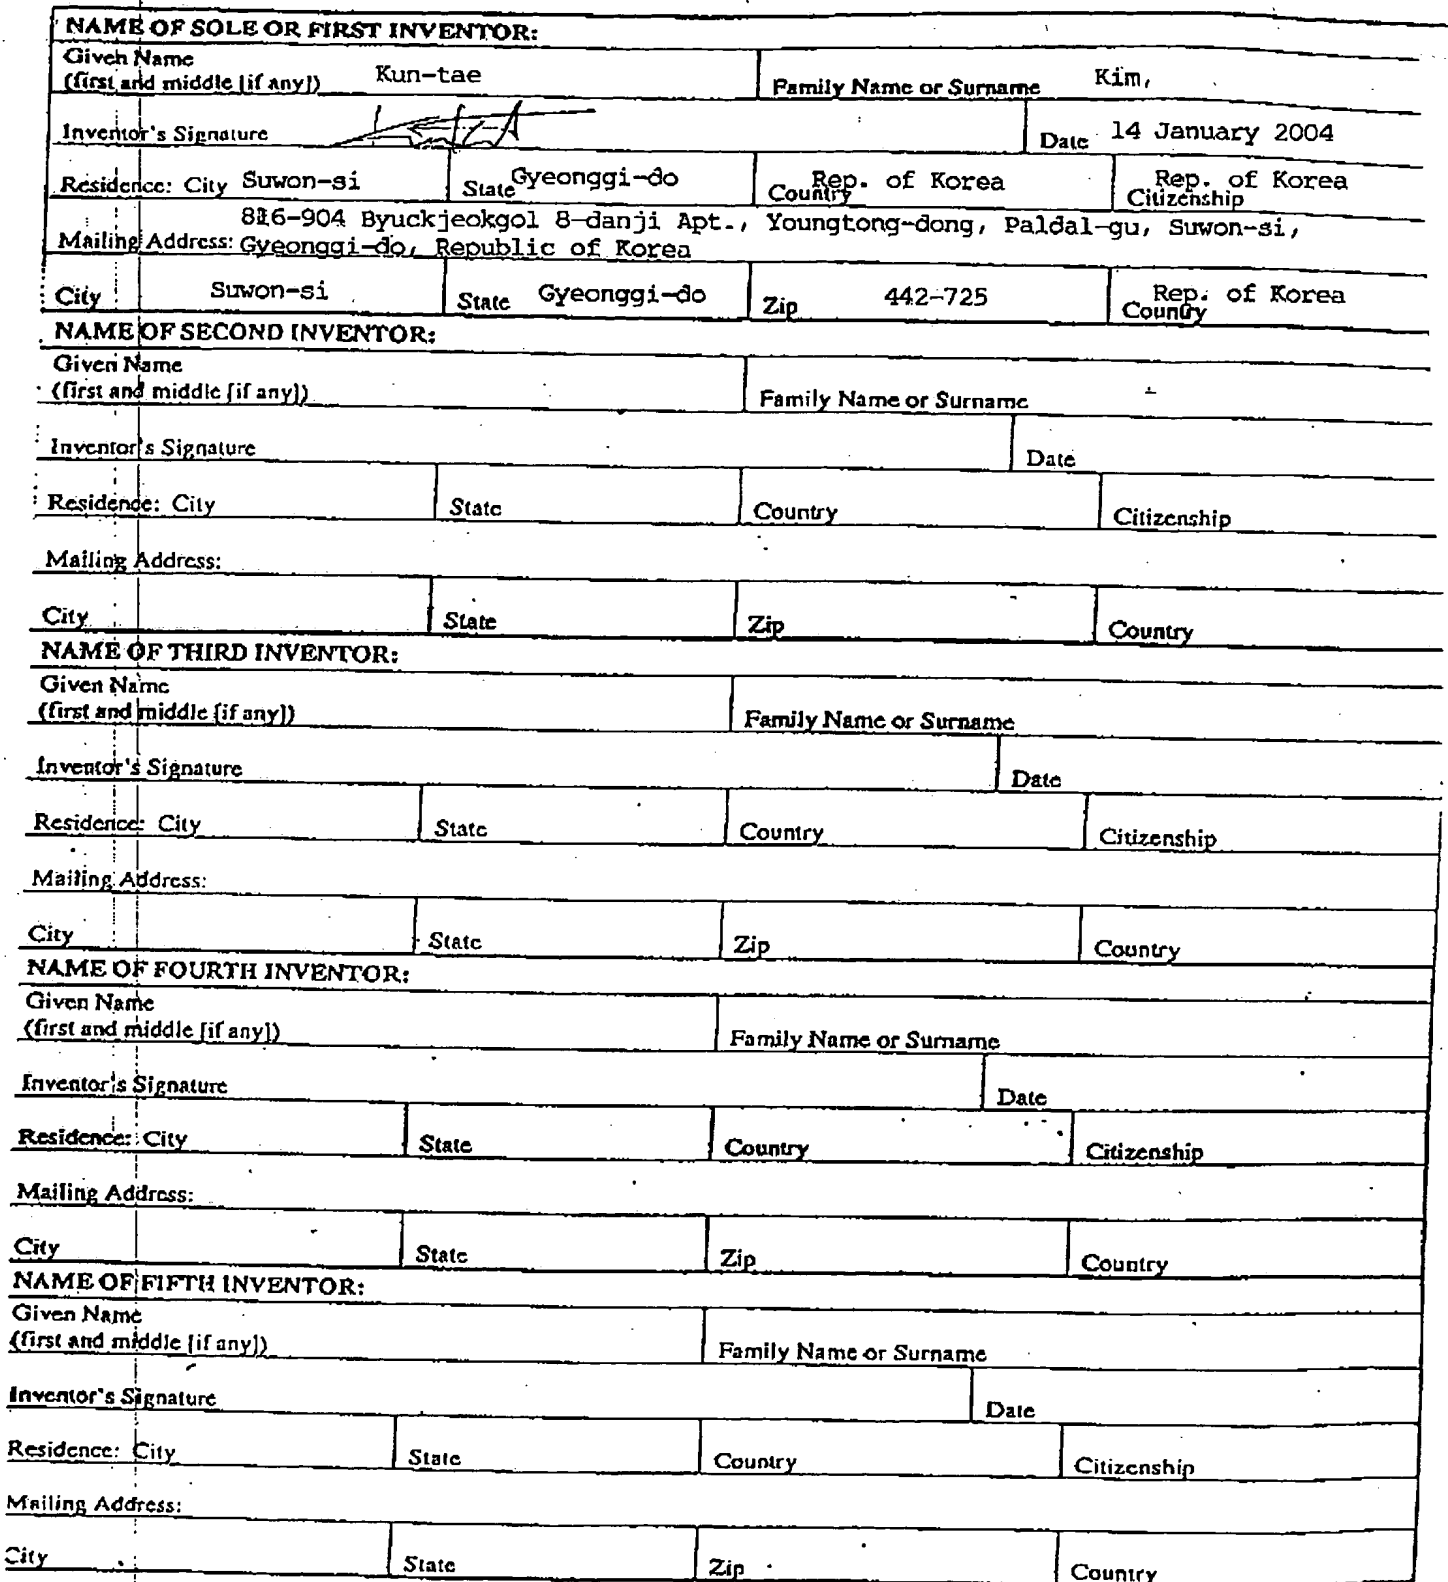 NAME OF SOLE OR FIRST INVENTOR:
Given Name
(first and middle [if any]) Kun-tae Family Name or Surname Kim,
Inventor's Signature Date 14 January 2004
Residence: City Suwon-si State Gyeonggi-do Country Rep. of Korea Citizenship Rep. of Korea
816-904 Byuckjeokgol 8-danji Apt., Youngtong-dong, Paldal-gu, Suwon-si,
Mailing Address: Gyeonggi-do, Republic of Korea
City Suwon-si State Gyeonggi-do Zip 442-725 Country Rep. of Korea
NAME OF SECOND INVENTOR:
Given Name
(first and middle [if any]) Family Name or Surname
Inventor's Signature Date
Residence: City State Country Citizenship
Mailing Address:
City State Zip Country
NAME OF THIRD INVENTOR:
Given Name
(first and middle [if any]) Family Name or Surname
Inventor's Signature Date
Residence: City State Country Citizenship
Mailing Address:
City State Zip Country
NAME OF FOURTH INVENTOR:
Given Name
(first and middle [if any]) Family Name or Surname
Inventor's Signature Date
Residence: City State Country Citizenship
Mailing Address:
City State Zip Country
NAME OF FIFTH INVENTOR:
Given Name
(first and middle [if any]) Family Name or Surname
Inventor's Signature Date
Residence: City State Country Citizenship
Mailing Address:
City State Zip Country